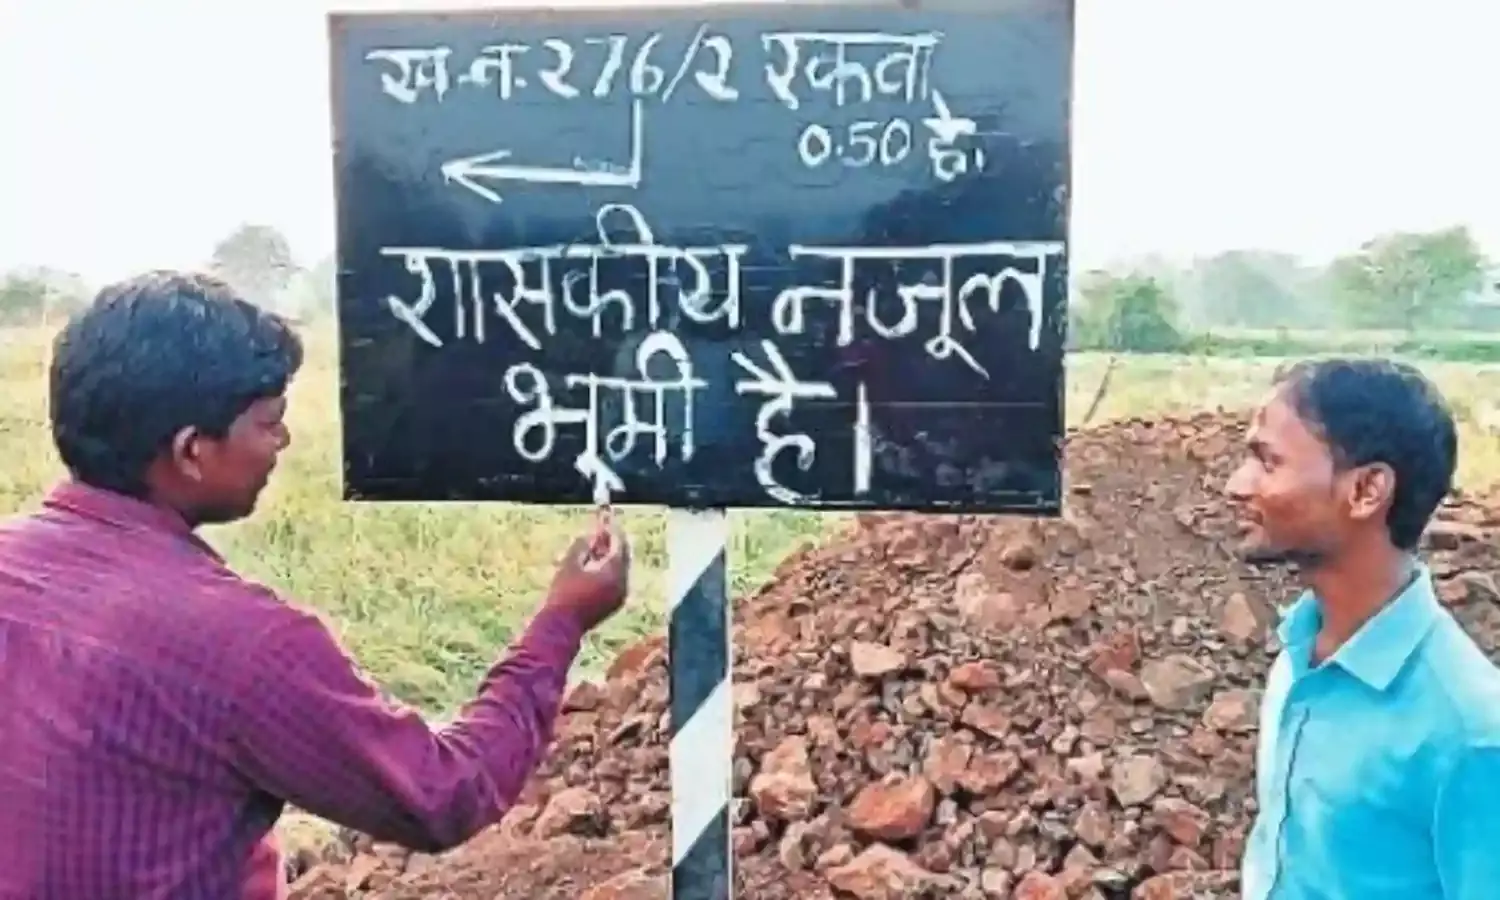 ख.न. 276/2 रकवा
0.50 हे.
शासकीय नजूल
भूमी है।